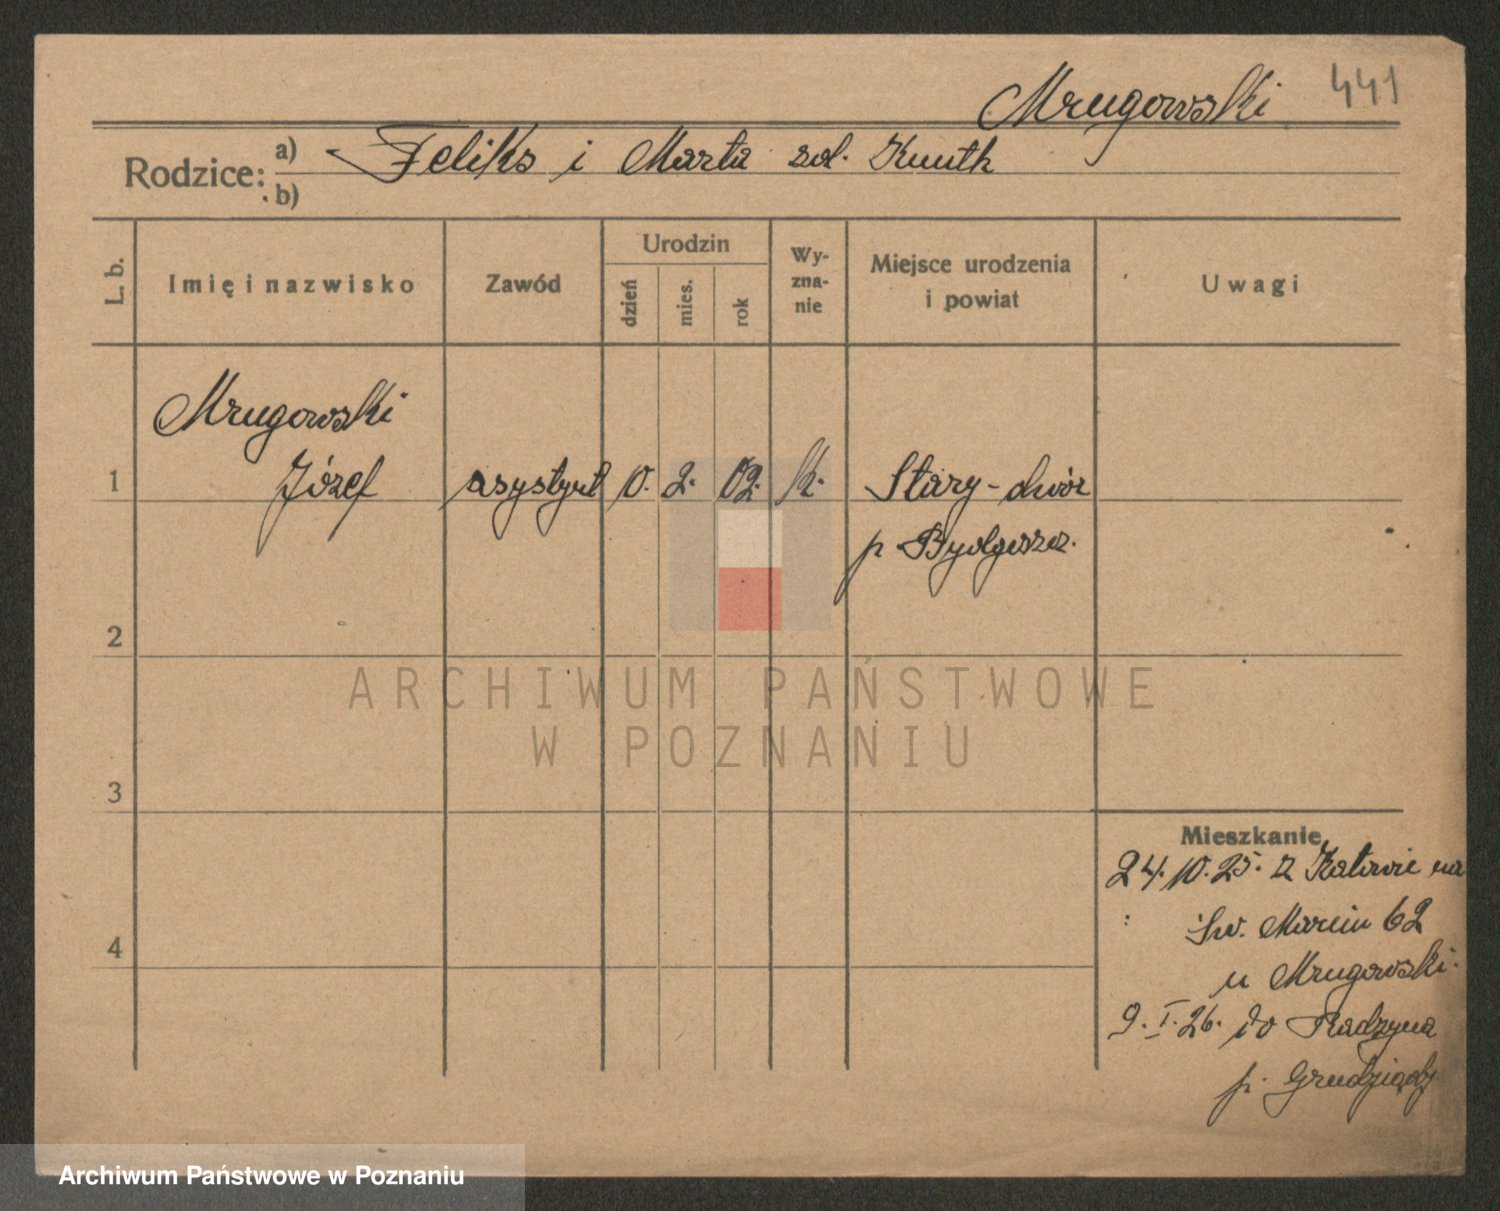 Mrugowski 441
Rodzice: a) Feliks i Marta zol. Knuth
b)
L. b.
Imię i nazwisko
Zawód
Urodzin
dzień
mies.
rok
Wy-
zna-
nie
Miejsce urodzenia
i powiat
Uwagi
Mrugowski
1 Józef asystent 10. 2. 02. k. Stary-dwór
p. Bydgoszcz.
2
3
4
Mieszkanie
24. 10. 25. z Katowic na
Św. Marcin 62
u Mrugowski.
9. I. 26. do Radzyna
p. Grudziądz
ARCHIWUM PAŃSTWOWE
W POZNANIU
Archiwum Państwowe w Poznaniu